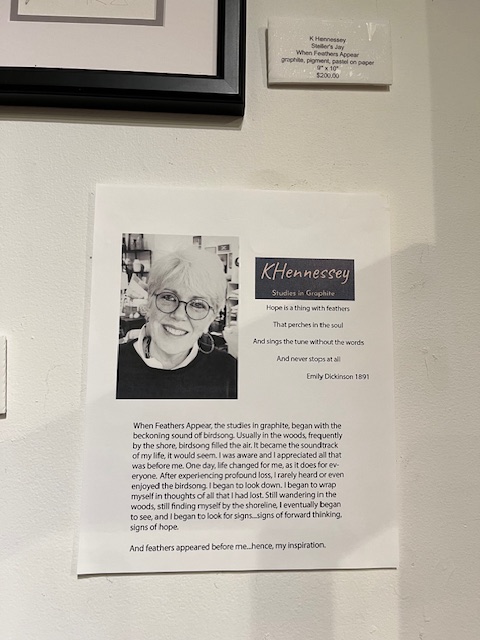 K Hennessey
Steller's Jay
When Feathers Appear
graphite, pigment, pastel on paper
8" x 10"
$200.00
KHennessey
Studies in Graphite
Hope is a thing with feathers
That perches in the soul
And sings the tune without the words
And never stops at all
Emily Dickinson 1891
When Feathers Appear, the studies in graphite, began with the
beckoning sound of birdsong. Usually in the woods, frequently
by the shore, birdsong filled the air. It became the soundtrack
of my life, it would seem. I was aware and I appreciated all that
was before me. One day, life changed for me, as it does for ev-
eryone. After experiencing profound loss, I rarely heard or even
enjoyed the birdsong. I began to look down. I began to wrap
myself in thoughts of all that I had lost. Still wandering in the
woods, still finding myself by the shoreline, I eventually began
to see, and I began to look for signs...signs of forward thinking,
signs of hope.
And feathers appeared before me...hence, my inspiration.